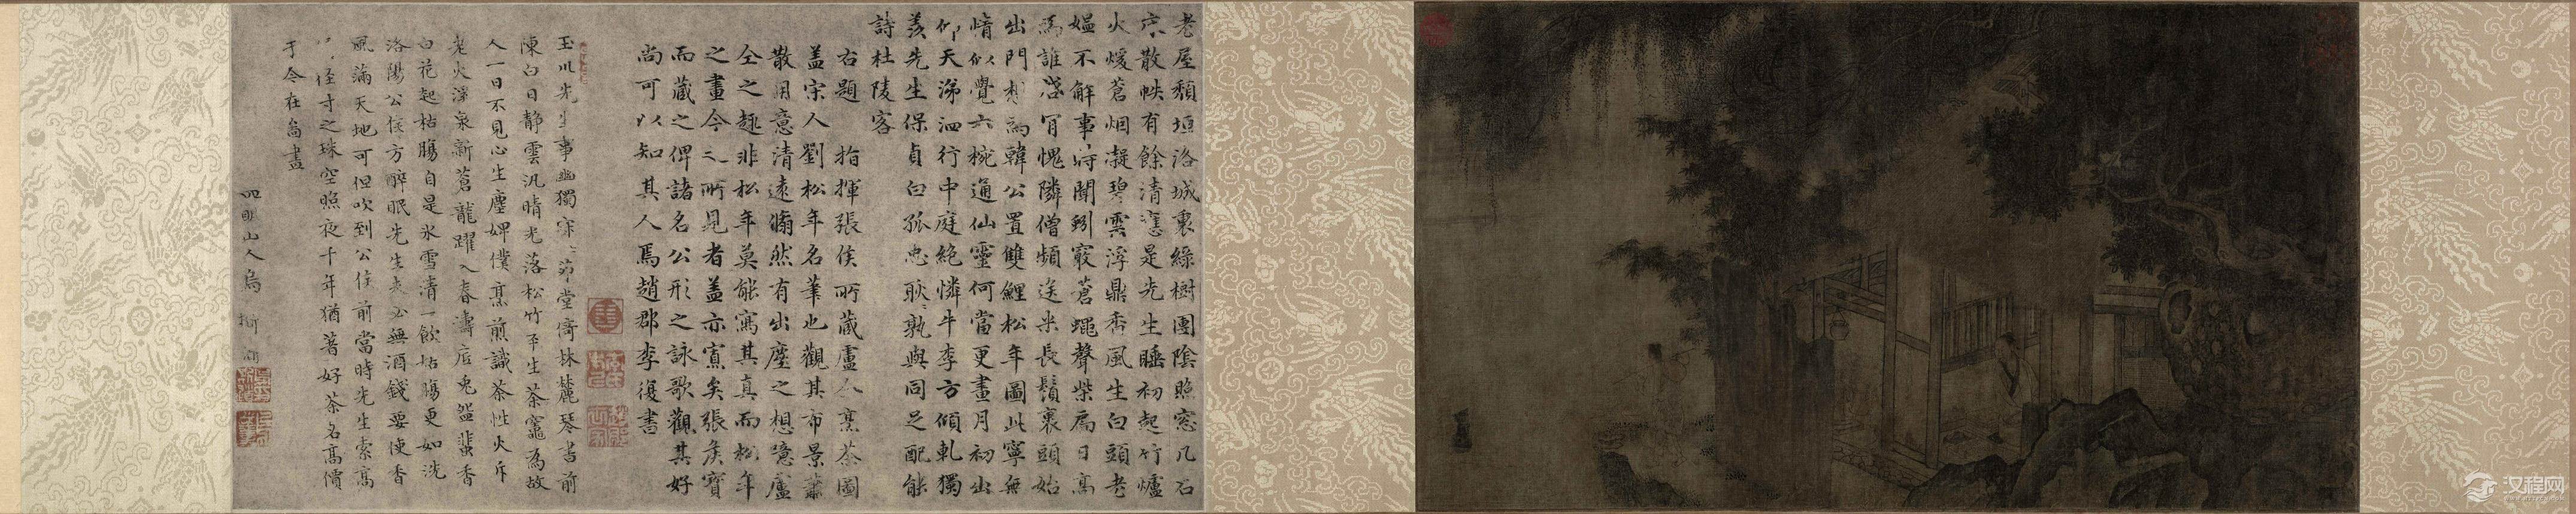 老屋頹垣洛城裏綠樹團陰照窓几石
床散帙有餘清憲是先生睡初起竹爐
火煖蒼烟凝碧雲浮鼎香風生白頭老
媼不解事時聞蚓竅蒼蠅聲柴扃日高
為誰啓肯愧隣僧頻送米長鬚裹頭始
出門想為韓公置雙鯉松年圖此寧無
情似覺六椀通仙靈何當更畫月初出
仰天涕泗行中庭絕憐牛李方傾軋獨
羨先生保貞白孤忠耿耿孰與同足配能
詩杜陵客
右題 指揮張侯所藏盧仝烹茶圖
蓋宋人劉松年名筆也觀其布景蕭
散用意清遠翛然有出塵之想憶盧
仝之趣非松年莫能寫其真而松年
之畫今之所見者蓋亦寡矣張侯寶
而藏之俾諸名公形之詠歌觀其好
尚可以知其人焉趙郡李復書
玉川先生事幽獨寂茆堂窗林麓琴書前
陳白日靜雲汎晴光落松竹平生茶竈為故
人一日不見心生塵婢僕烹煎識茶性火斥
老火深泉新蒼龍躍入春濤底兔盌蜚香
白花起枯腸自是氷雪清一飲枯腸更如洗
洛陽公侯方醉眠先生未必無酒錢要使香
風滿天地可但吹到公侯前當時先生索高
徑寸之珠空照夜千年猶著好茶名高價
于今在畫
四明山人烏
汉程网